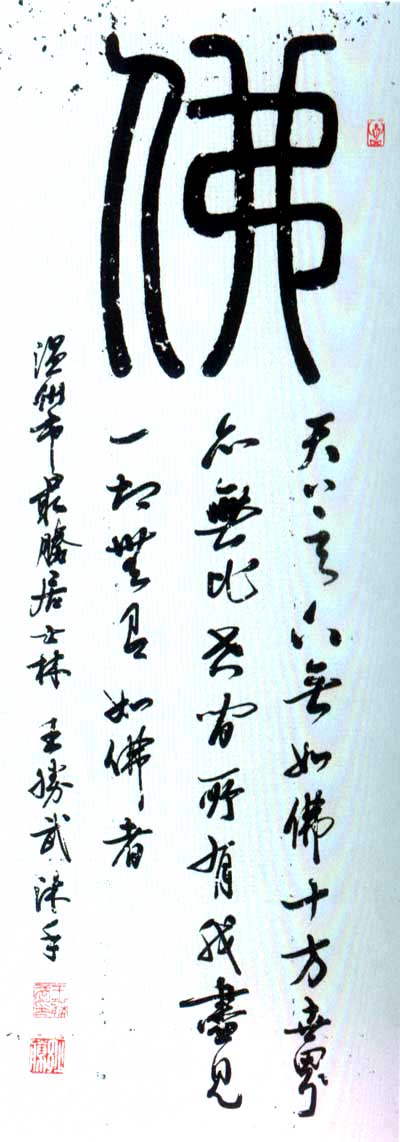 佛
天上天下無如佛十方世界
亦無比世間所有我盡見
一切無有如佛者
温州市最勝居士林 王勝武沐手